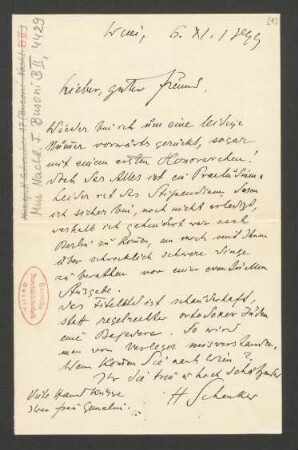 Wien, 6. XI. 1899
[1]
Lieber, guter Freund.
Wieder bin ich um eine leidige
Nummer vorwärts gerückt, sogar
mit einem ersten Honorarchen.
Doch das Alles ist ein Praeludium.
Leider ist das Stipendium, dessen
ich sicher bin, noch nicht erledigt,
weshalb ich gehindert war nach
Berlin zu kommen, um mich mit Ihnen
über schrecklich schwere Dinge
zu berathen vor einer eventuellen
Ausgabe.
Das Titelbild ist schauderhaft,
statt regelrechter orthodoxer Juden
eine Bajadere. So wird
man vom Verleger missverstanden.
Wann kommen Sie nach Wien?
Ihr Sie treu u hoch schätzender
H Schenker
Viele Handküsse
Ihrer Frau Gemalin.
Mus. Nachl. F. Busoni B II, 4429